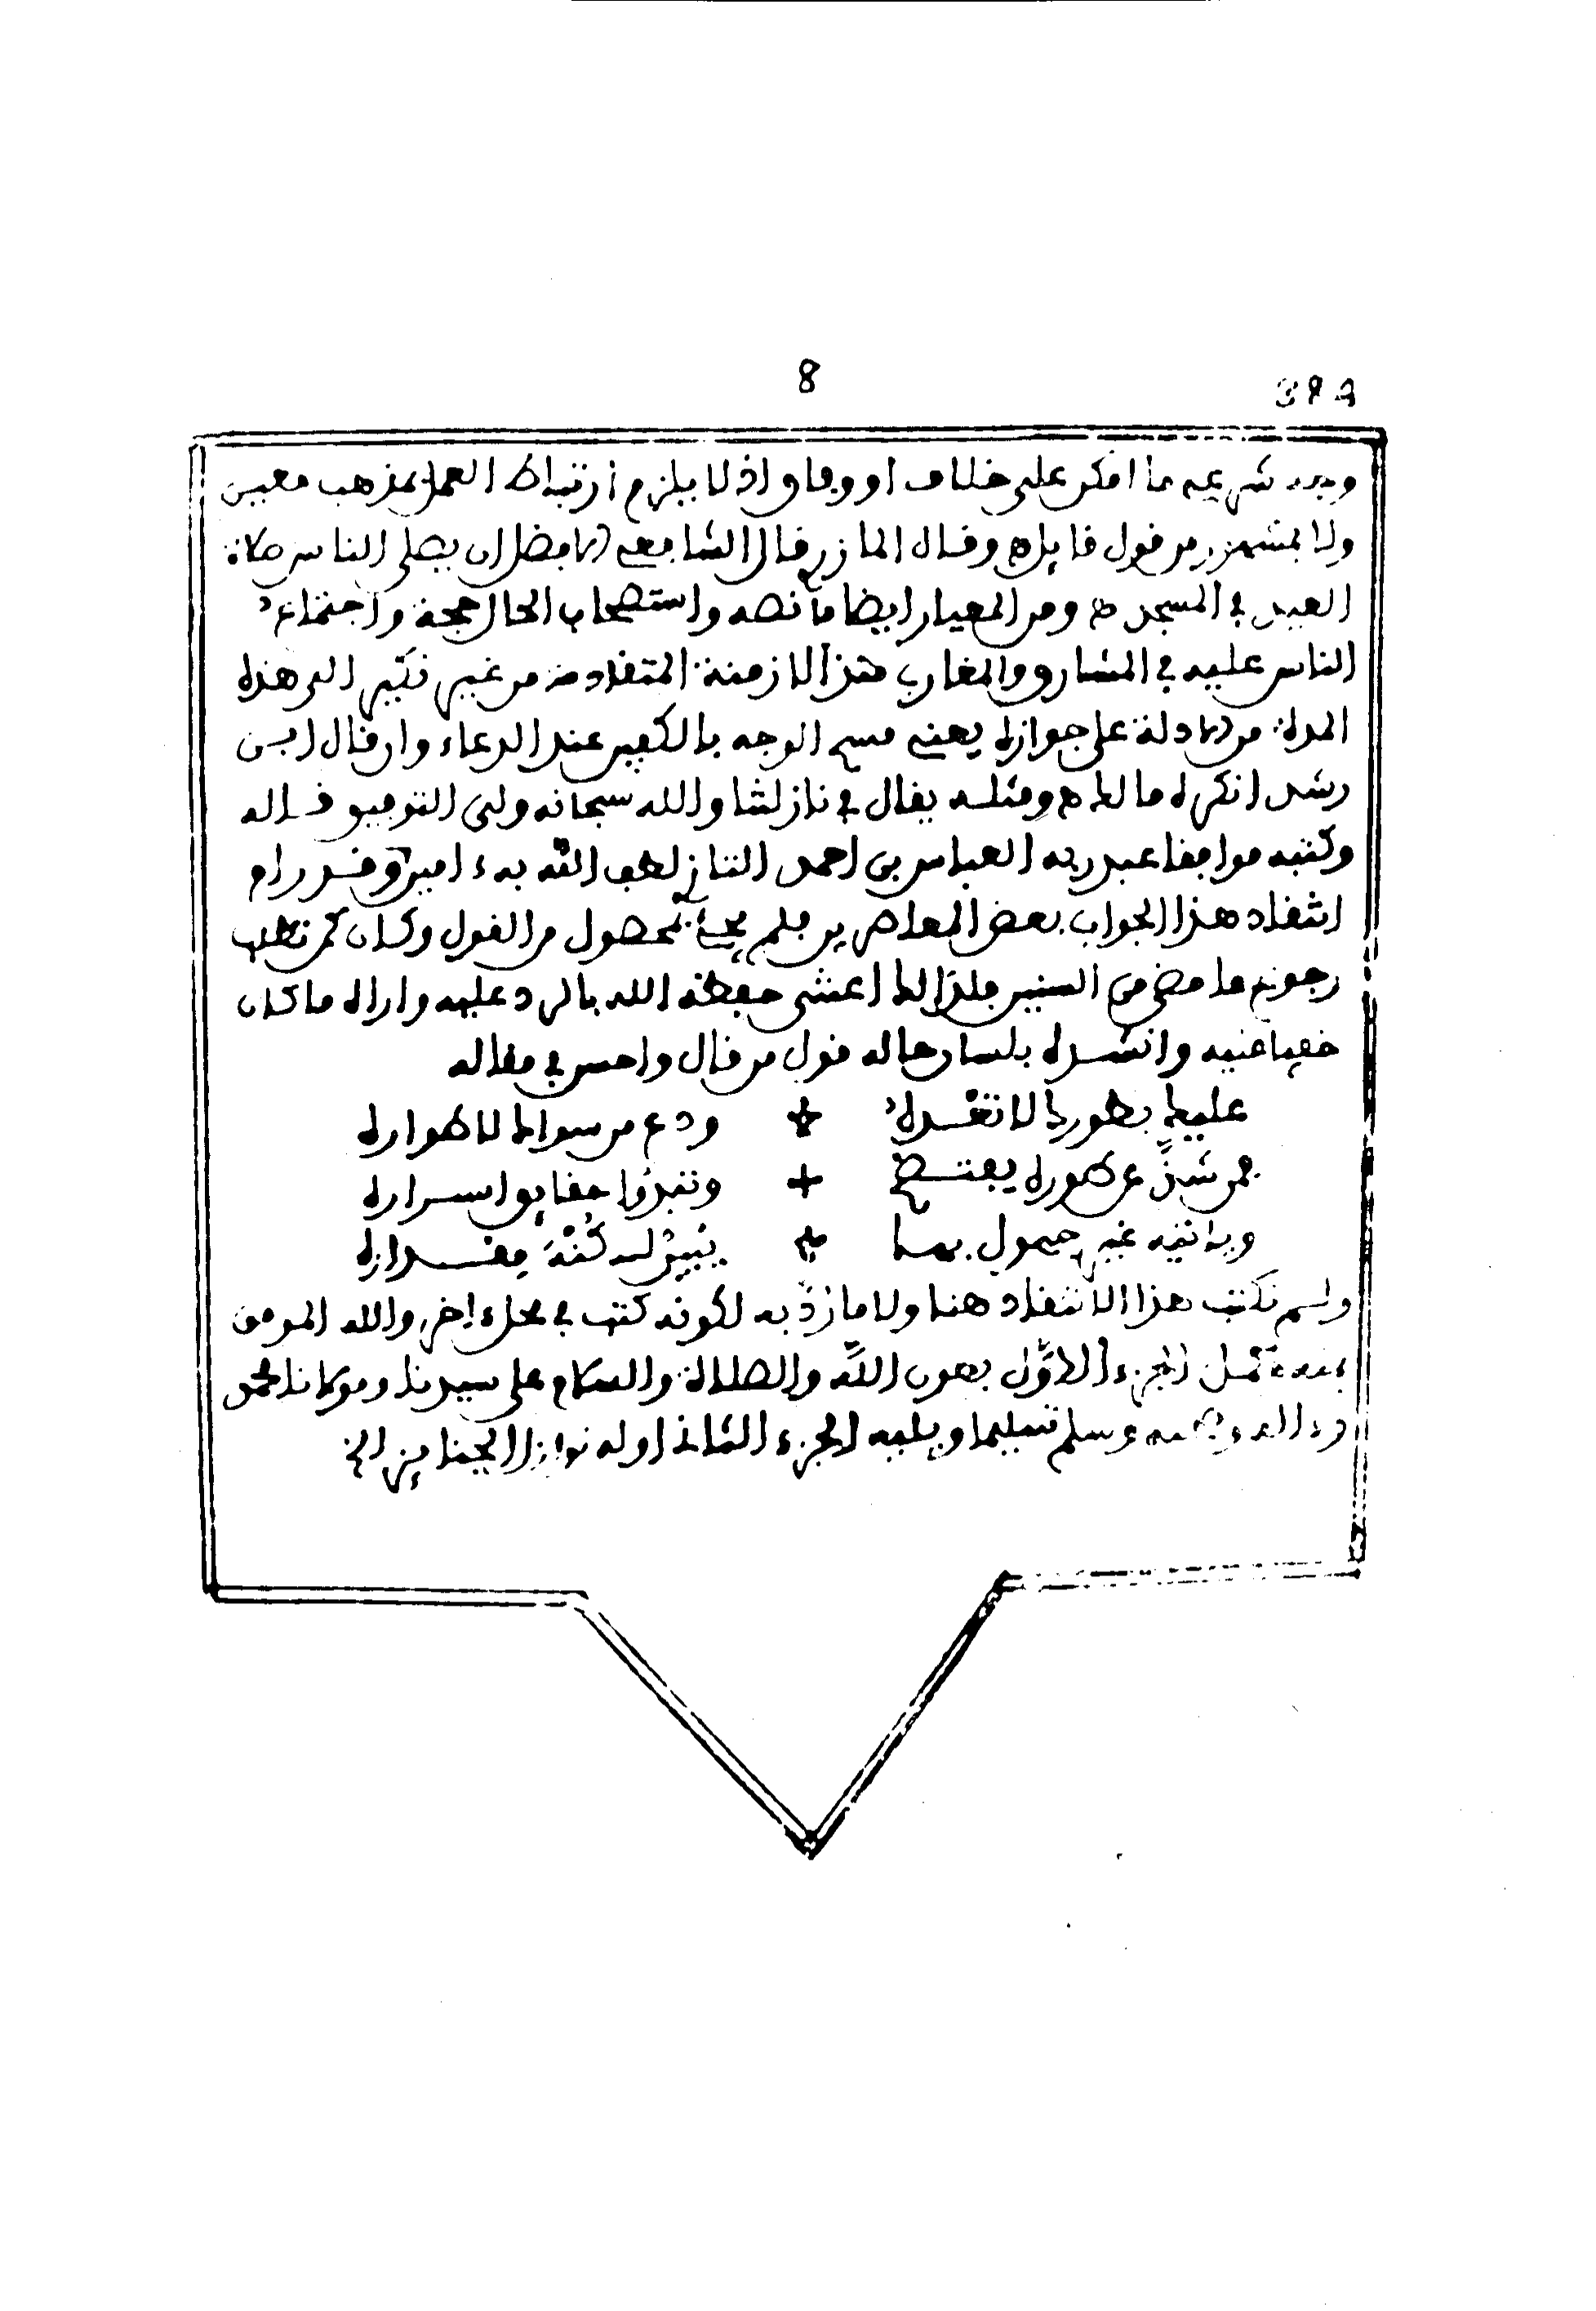 8
وجه شرعي ما امكن على خلاف او وفاق اذ لا يلزم ارتباط العمل بمذهب معين
ولا بمشهور من قول قائله وقال المازري قال الشافعي الافضل ان يصلي الناس صلاة
العيد في المسجد ه ومن المعيار ايضا ما نصه واستصحاب الحال حجة واجتماع
الناس عليه في المشارق والمغارب هذه الازمنة المتقادمة من غير نكير الى هذه
المدة من الادلة على جوازه يعني مسح الوجه بالكفين عند الدعاء وان قال ابن
رشد انكره مالك ه ومثله يقال في نازلتنا والله سبحانه ولي التوفيق قاله
وكتبه موافقا عبد ربه العباس بن احمد التازي لطف الله به ءامين وقد رام
انتقاد هذا الجواب بعض المعاصرين فلم يجئ بمحصول من القول وكان كمن تطلب
رجوع ما مضى من السنين فلذلك اعتنى حفظه الله بالرد عليه واراه ما كان
خفيا عنه وانشده بلسان حاله قول من قال واحسن في مقاله
عليك بطورك لا تعده + ودع من سواك لاطواره
فمن شذ عن طوره يفتضح + وتبدوا حقايق اسراره
ويأتيه غير جهول بها + يبين له كنه مقداره
ولم نكتب هذا الانتقاد هنا ولا ما رد به لكونه كتب في محل ءاخر والله الموفق
بمنه كمل الجزء الاول بعون الله والصلاة والسلام على سيدنا ومولانا محمد
وءاله وصحبه وسلم تسليما ويليه الجزء الثاني اوله نوازل الجنايز الخ